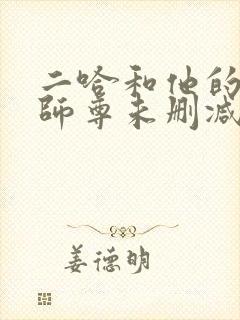 二哈和他的
师尊未删减
姜德明